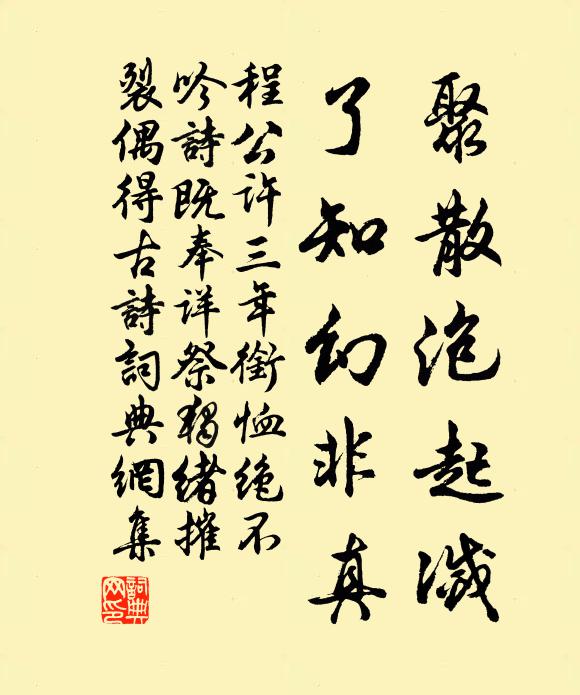 聚散泡起滅
了知幻非真
程公许三年銜恤绝不
吟詩既奉详祭猶绪摧
裂偶得古詩詞典網集
詞典
网印